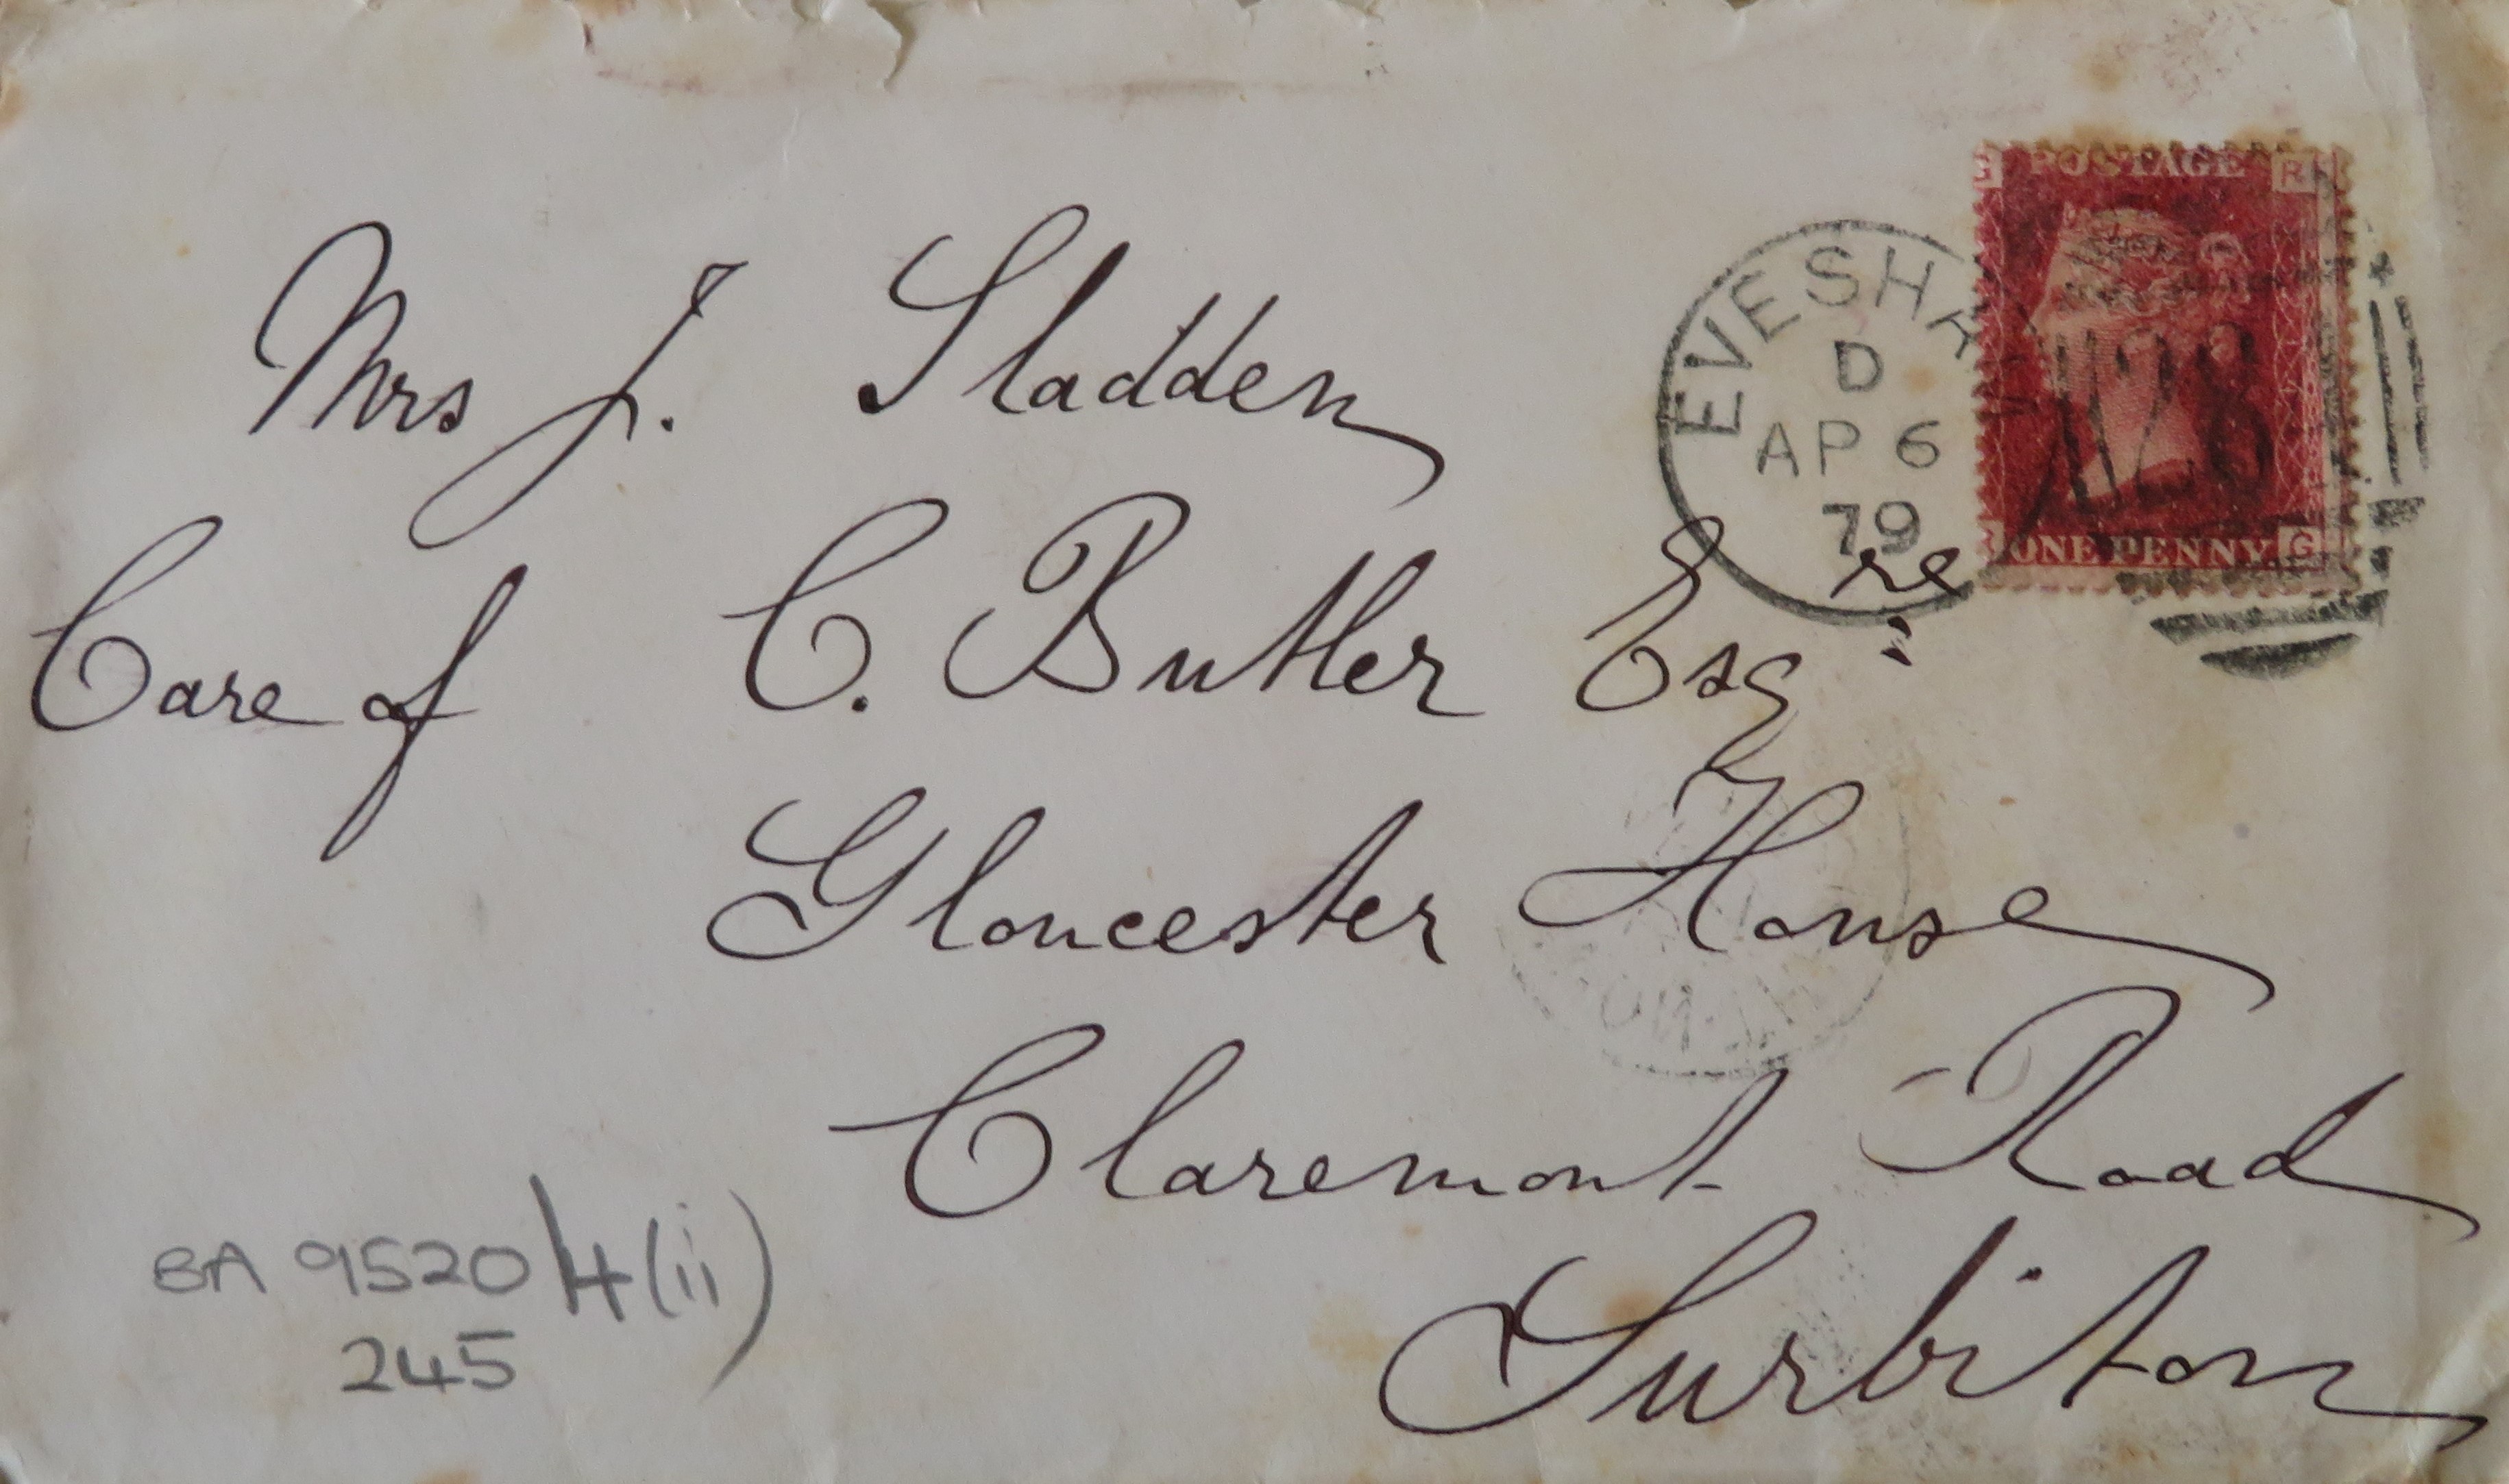 G POSTAGE R
EVESHA
D
AP 6
79
ONE PENNY. G
Mrs J. Sladden
Care of C. Butler Esqre
Gloucester House
Claremont Road
Surbiton
BA 9520/4(ii)
245